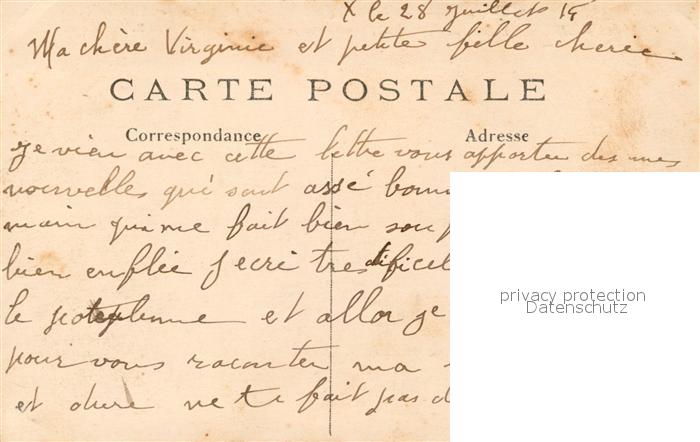 X le 28 Juillet 15
Ma chère Virginie et petite fille cherie
CARTE POSTALE
Correspondance Adresse
Je vien avec cette lettre vous apporter des mes
nouvelles qui sont assé bonn
main qui me fait bien sou
bien enflée J ecri tres dificel
le et allor je
pour vous raconter ma
et dure ne te fait pas d
privacy protection
Datenschutz